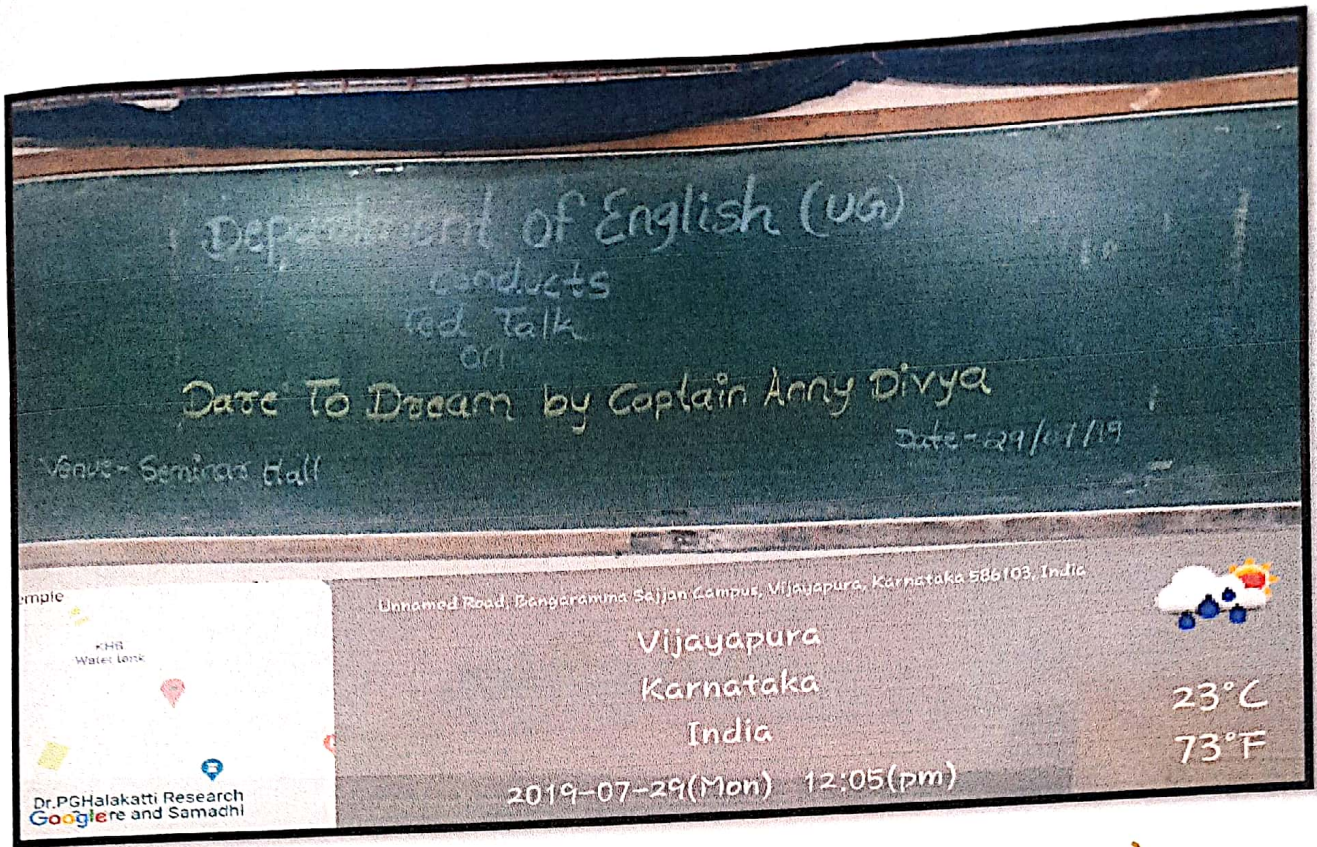 Department of English (UG)
Conducts
Ted Talk
on
Dare To Dream by Captain Anny Divya
Date - 29/07/19
Venue - Seminar Hall
emple
KHB
Water tank
Dr.PGHalakatti Research
Google re and Samadhi
Unnamed Road, Bangaramma Sajjan Campus, Vijayapura, Karnataka 586103, India
Vijayapura
Karnataka
India
2019-07-29(Mon) 12:05(pm)
23°C
73°F